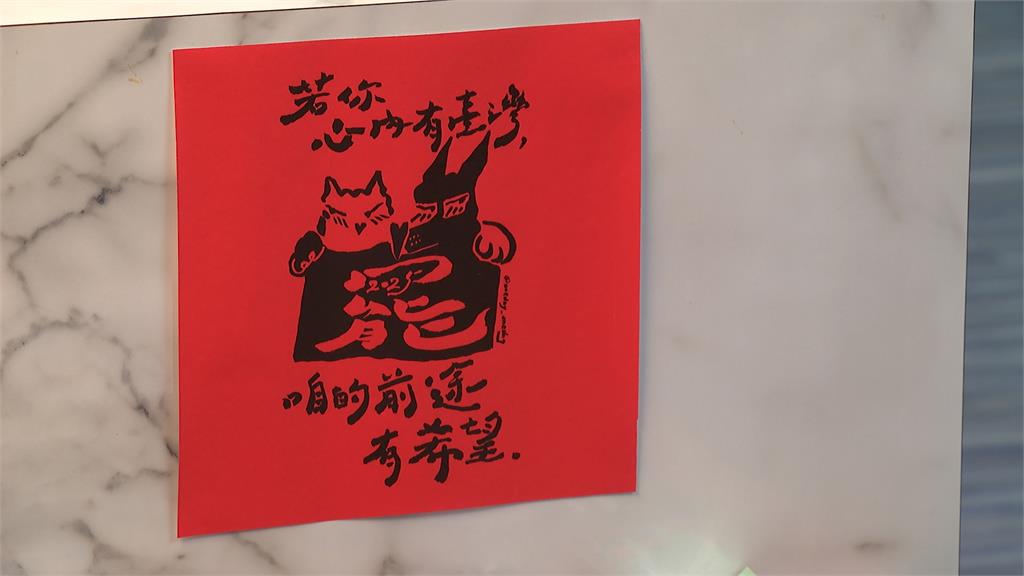 若你
心內有臺灣,
2025
咱的前途
有希望.